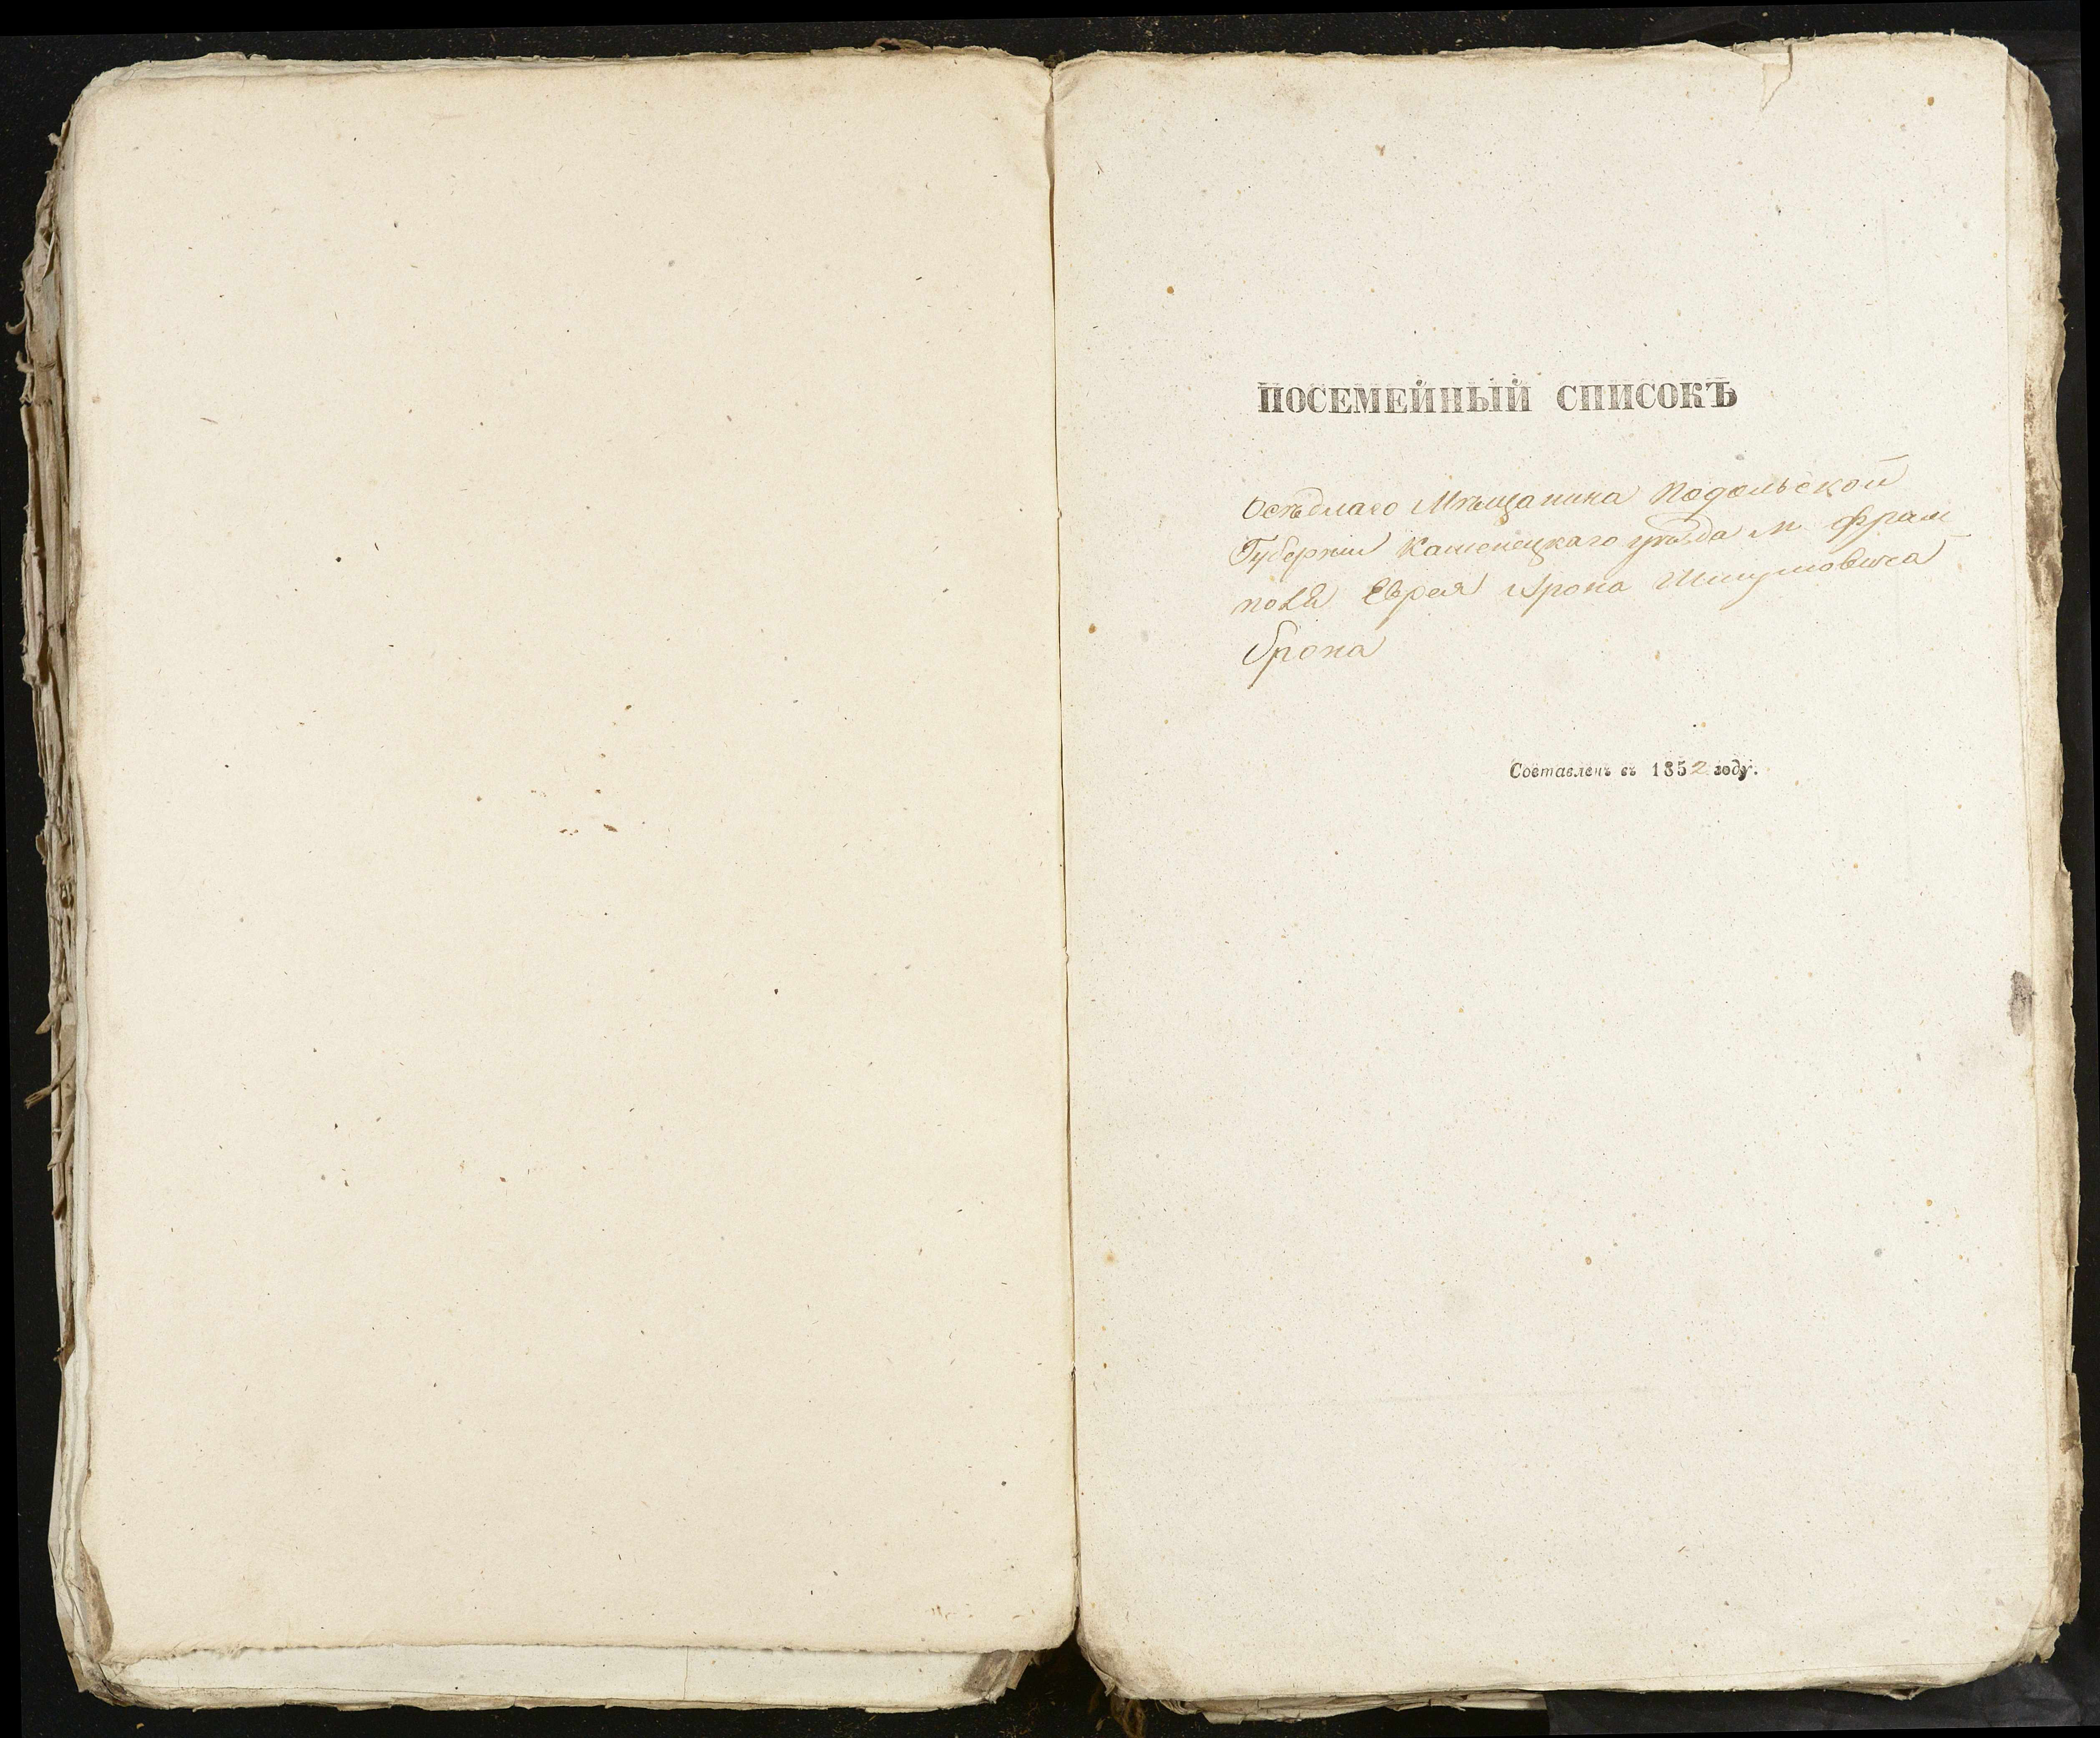 ПОСЕМЕЙНЫЙ СПИСОКЪ
Осѣдлаго Мѣщанина Подольской
Губерніи Каменецкаго уѣзда м. Фрам
поля Еврея Арона Шмулиовича
Брона
Составленъ въ 1852 году.